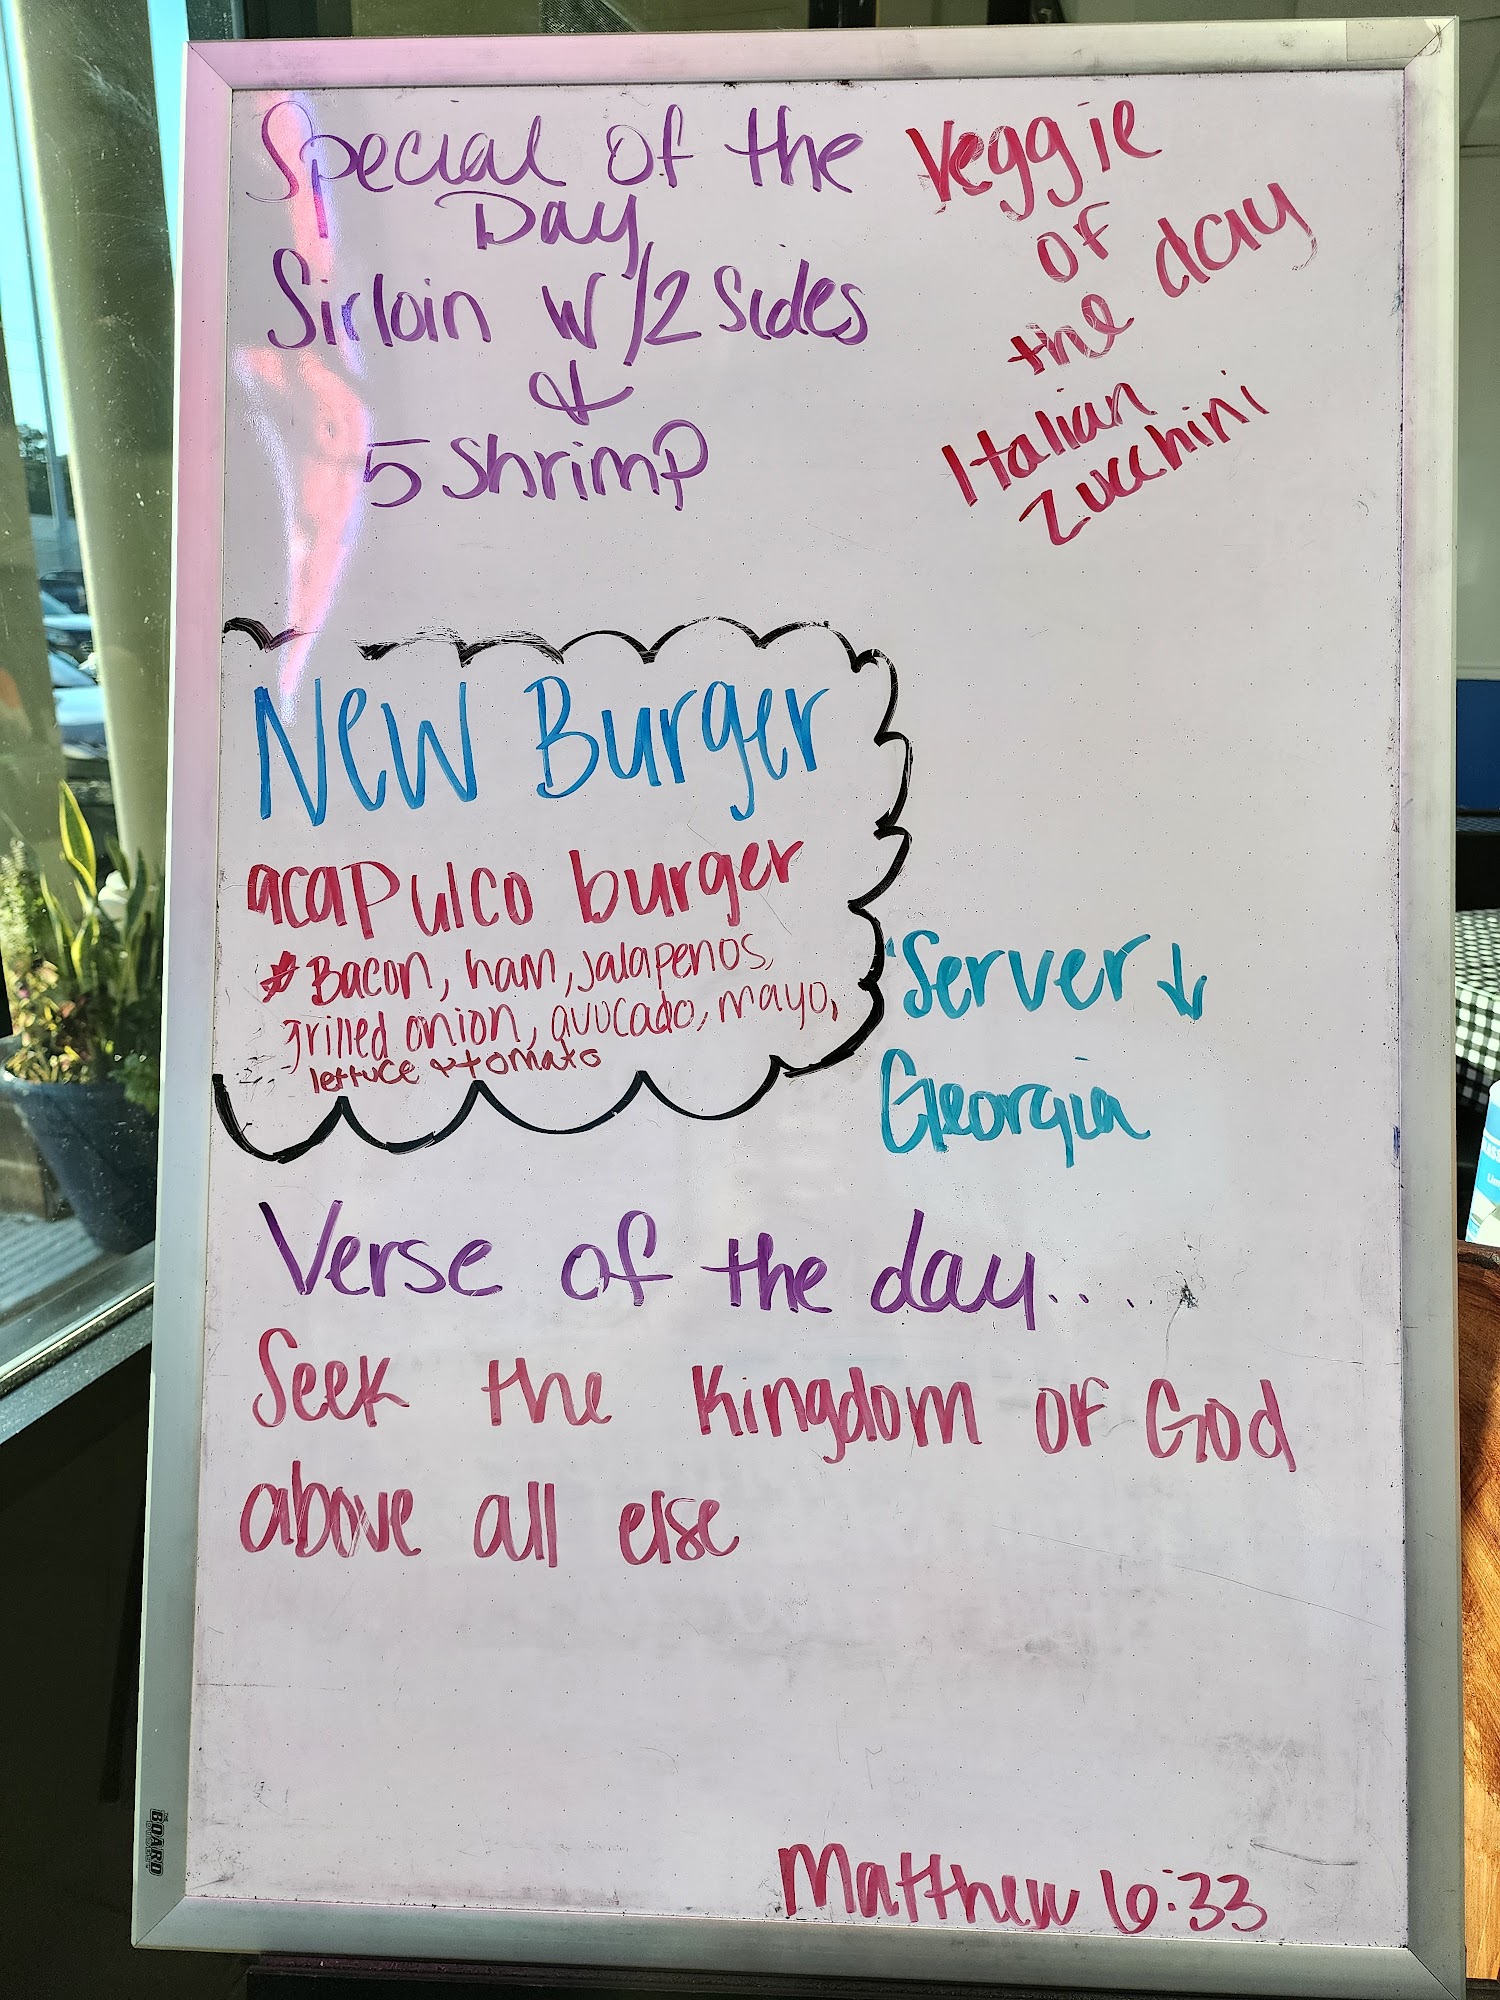 Special of the
Day
Sirloin w/2 Sides
&
5 Shrimp
Veggie
of
the day
Italian
Zucchini
New Burger
acapulco burger
* Bacon, ham, jalapenos,
grilled onion, avocado, mayo,
lettuce & tomato
Server ↓
Georgia
Verse of the day.....
Seek the Kingdom of God
above all else
Matthew 6:33
THE BOARD